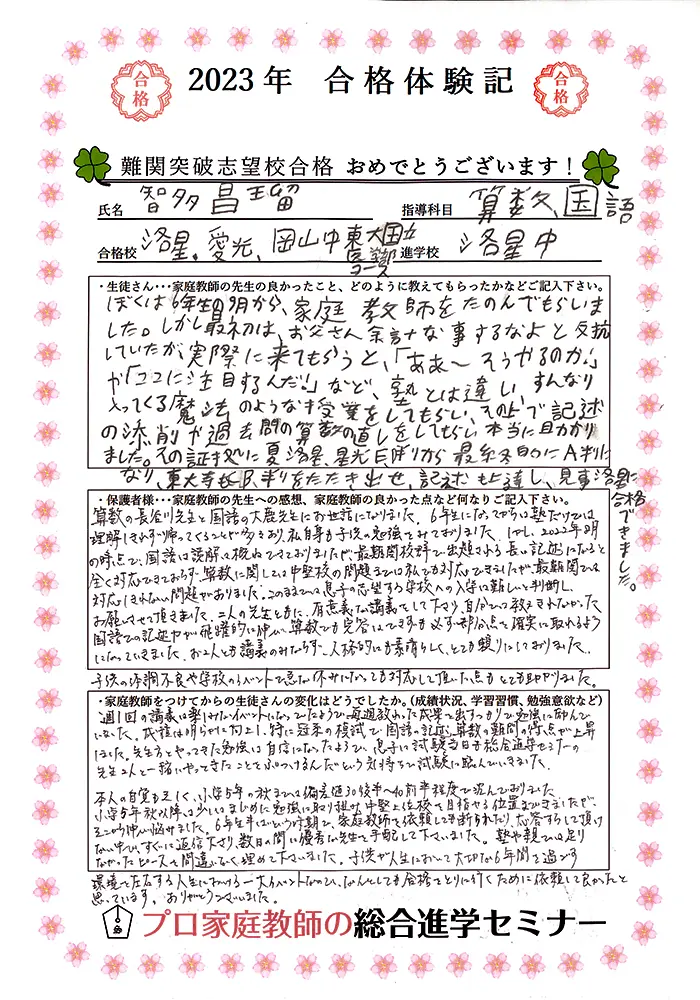 合格
2023年 合格体験記
合格
難関突破志望校合格 おめでとうございます!
氏名 智多 昌瑠 指導科目 算数、国語
合格校 洛星、愛光、岡山中東大国立医学部コース 進学校 洛星中
・生徒さん・・・家庭教師の先生の良かったこと、どのように教えてもらったかなどご記入下さい。
ぼくは6年生の9月から、家庭教師をたのんでもらいま
した。しかし最初は、お父さん余計な事するなよと反抗
していたが、実際に来てもらうと、「ああ〜そうやるのか。」
や「ココに注目するんだ!」など、塾とは違い、すんなり
入ってくる魔法のような授業をしてもらい、その上で記述
の添削や過去問の算数の直しをしてもらい本当に助かり
ました。その証拠に夏洛星、星光E判から最終的にA判に
なり、東大寺もB判をたたき出せ、記述も上達し、見事洛星に
合格できました。
・保護者様・・・家庭教師の先生への感想、家庭教師の良かった点など何なりご記入下さい。
算数の長谷川先生と国語の大鹿先生にお世話になりました。6年生になってからは塾だけでは
理解しきれず帰ってくることが多くあり、私自身も子供の勉強をみておりました。しかし、2022年8月
の時点で、国語は読解は概ねできておりましたが、最難関校群で出題される長い記述になると
全く対応できておらず、算数に関しては中堅校の問題までは私でも対応できましたが、最難関では
対応しきれない問題がありました。このままでは息子の志望する学校への入学は難しいと判断し、
お願いさせて頂きました。二人の先生ともに、有意義な講義をして下さり、自分では教えきれなかった
国語での記述力が飛躍的に伸び、算数でも完答はできずも必ず部分点を確実に取れるよう
になっていきました。お2人とも講義のみならず、人格的にも素晴らしく、とても頼りにしておりました。
子供の体調不良や学校のイベントで急な休みになっても対応して頂いた点もとても助かりました。
・家庭教師をつけてからの生徒さんの変化はどうでしたか。(成績状況、学習習慣、勉強意欲など)
週1回の講義は楽しみなイベントになっていたようで、毎週教わった成果を出すっかりで勉強に励んで
いました。成績は明らかに向上し、特に冠系の模試で国語の記述、算数の難問の得点が上昇
しました。先生方とやってきた勉強は自信になったようで、息子は試験当日も総合進学セミナーの
先生2人と一緒にやってきたことをぶつけるんだという気持ちで試験に臨んでいきました。
本人の自覚も乏しく、小学5年の秋までは偏差値30後半〜40前半程度で泥んでおりました。
小学5年秋以降は少しまじめに勉強に取り組み、中堅上位校を目指せる位置まできましたが、
そこから伸び悩みました。6年生半ばという時期で、家庭教師を依頼しても断られたり、応答すらして頂け
ない中ですぐに返信下さり、数日の間に優秀な先生を手配して下さいました。塾や親では足り
なかったピースを間違いなく埋めて下さいました。子供が人生において大切な6年間を過ごす
環境を左右する人生における一大イベントなので、なんとしても合格をとりに行くために依頼して良かったと
思っています。ありがとうございました。
プロ家庭教師の総合進学セミナー